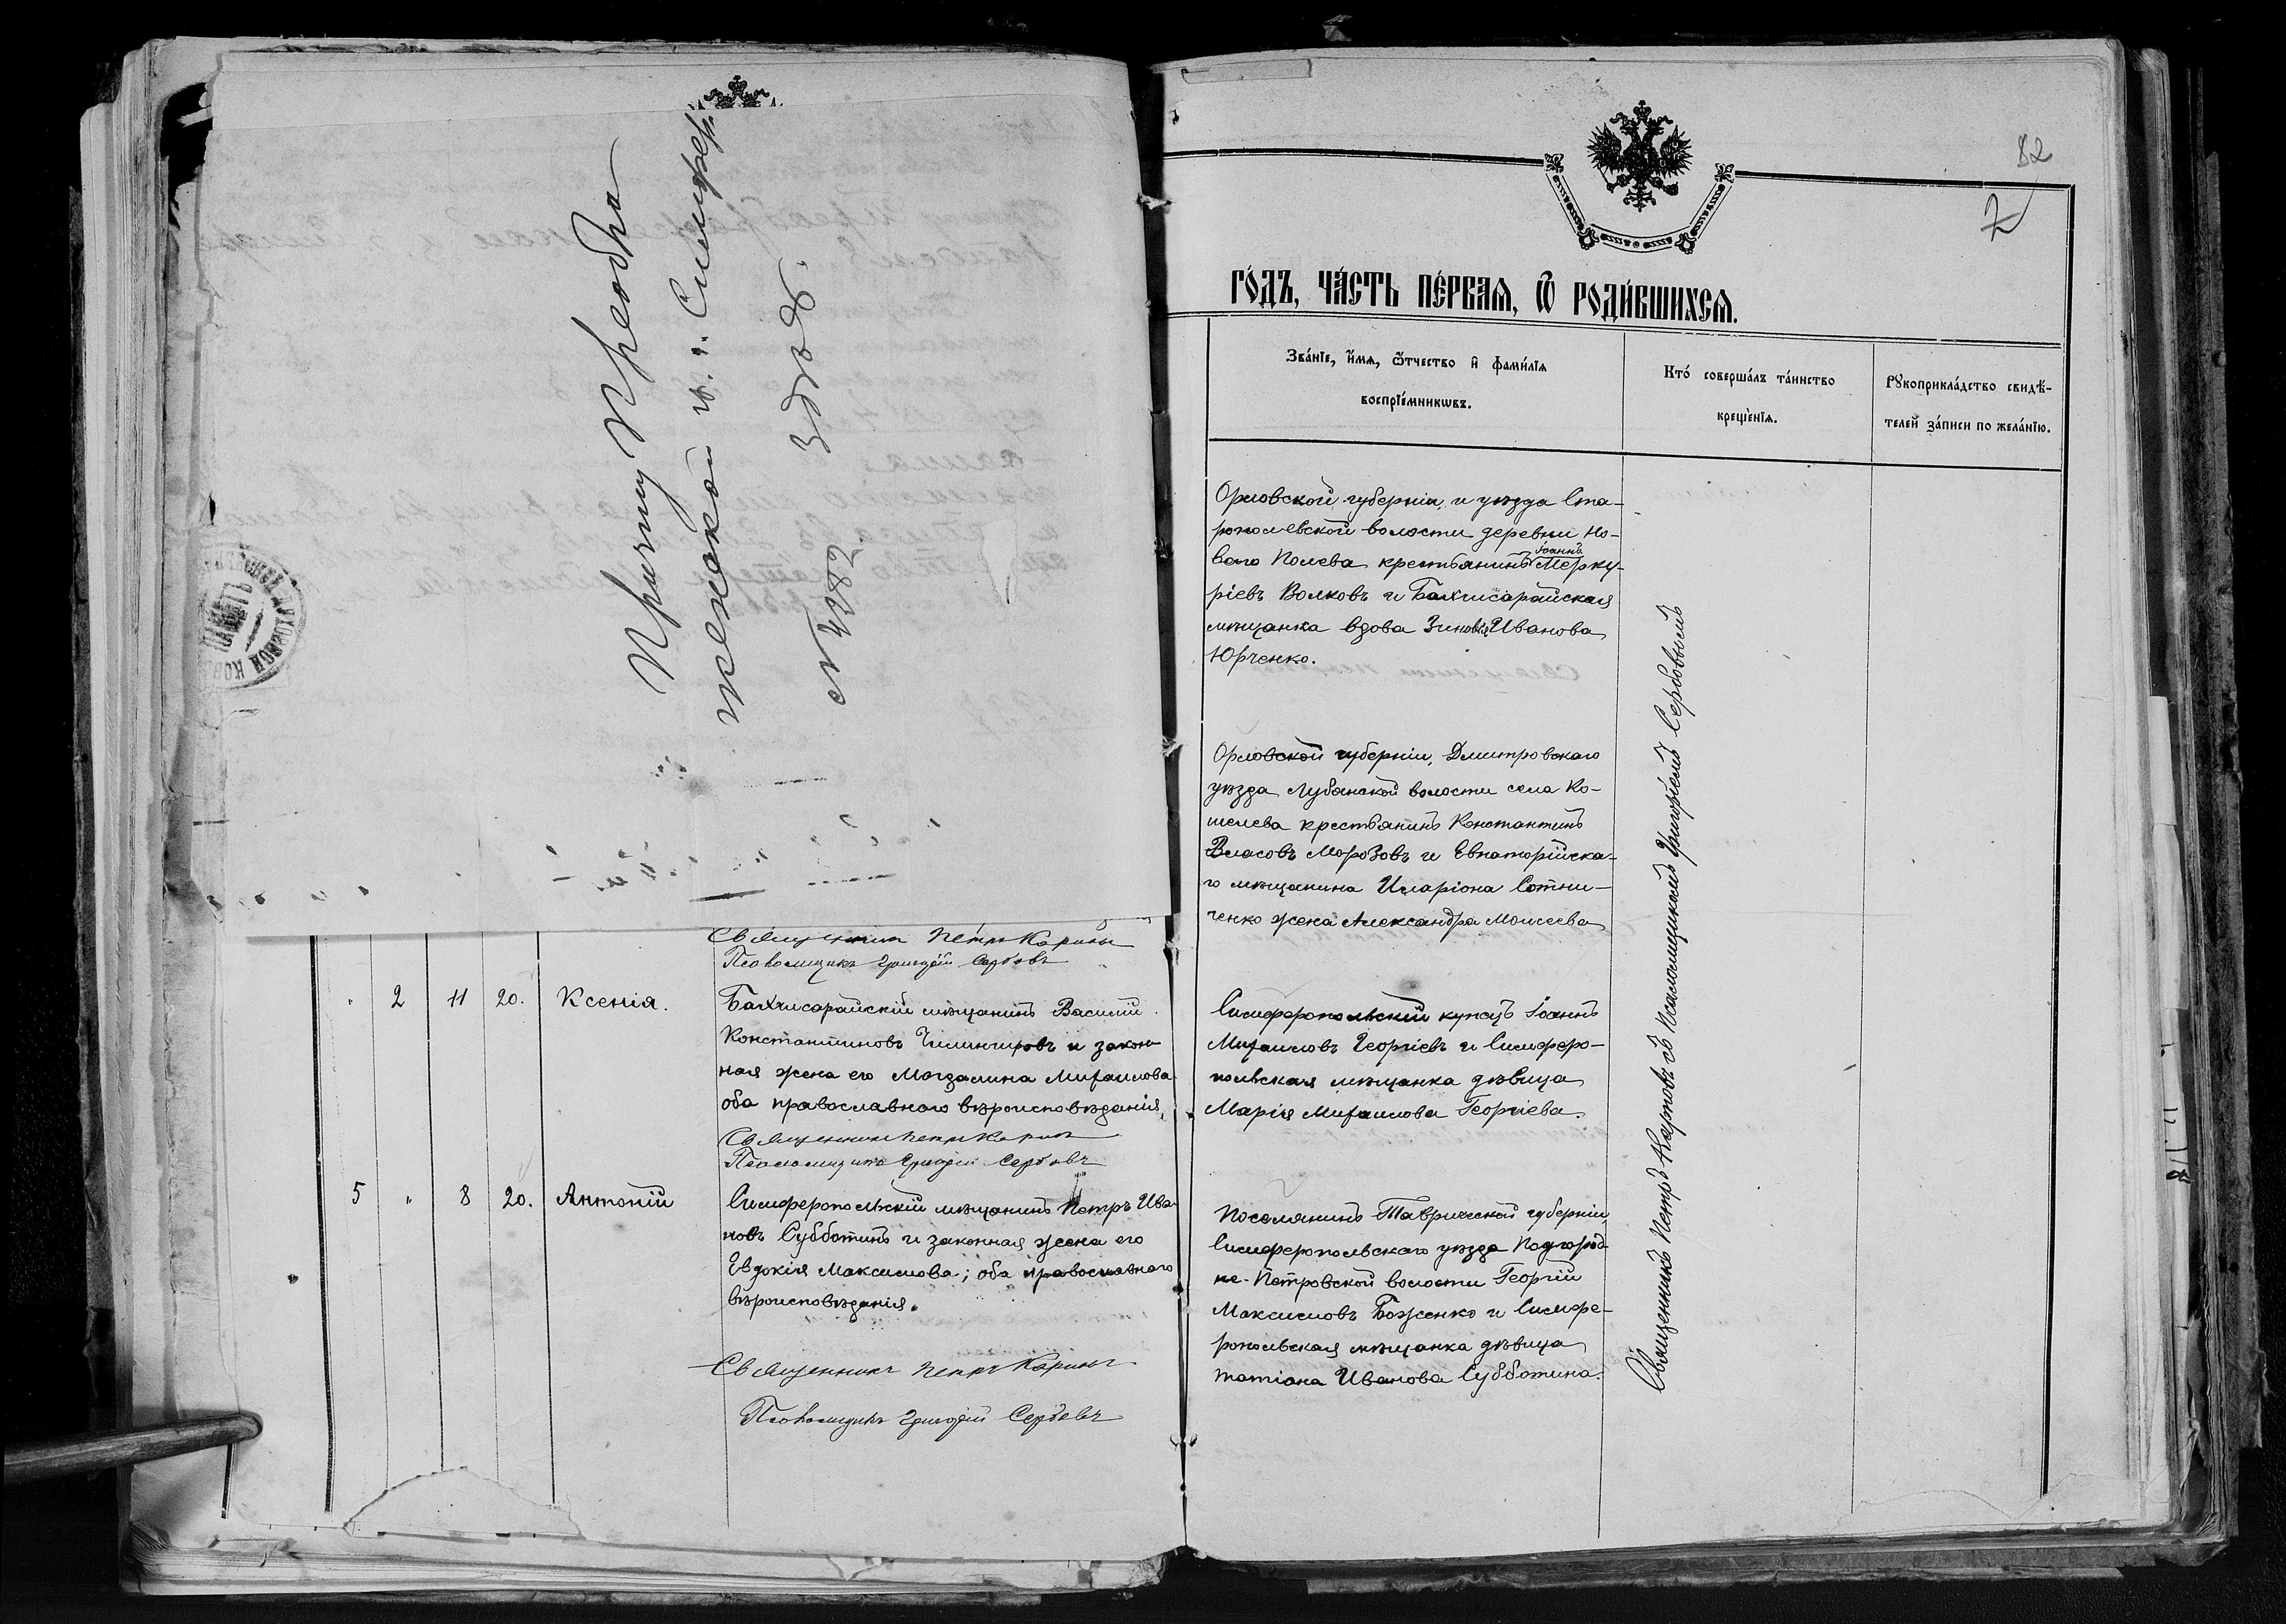 Причту Преобра-
женской ц. г. Симфер.
Здѣсь.
№ 4382
Священникъ Петръ Карповъ
Псаломщикъ Григорій Сербовъ
" 2 11 20. Ксенія.
Бахчисарайскій мѣщанинъ Василій
Константиновъ Чилингировъ и закон-
ная жена его Магдалина Михаилова
оба православнаго вѣроисповѣданія.
Священникъ Петръ Карповъ
Псаломщикъ Григорій Сербовъ
5 " 8 20. Антоній
Симферопольскій мѣщанинъ Петръ Ива-
новъ Субботинъ и законная жена его
Евдокія Максимова; оба православнаго
вѣроисповѣданія.
Священникъ Петръ Карповъ
Псаломщикъ Григорій Сербовъ
82
7
го́дъ, ча́сть пе́рваѧ, ѿ роди́вшихсѧ.
Зва́нїе, и́мѧ, ѻ́тчество и҆ фами́лїѧ
воспрїе́мникωвъ.
Кто́ соверша́лъ та́инство
креще́нїѧ.
Рꙋкоприкла́дство свидѣ́-
телей за́писи по жела́нїю.
Орловской губерніи, и уѣзда Ста-
рополевской волости деревни Но-
ваго Полева крестьянинъ Іоаннъ Мерку-
ріевъ Волковъ и Бахчисарайская
мѣщанка вдова Зиновія Иванова
Юрченко.
Орловской губерніи, Дмитровскаго
уѣзда Лубянской волости села Ко-
шелева крестьянинъ Константинъ
Власовъ Морозовъ и Евпаторійска-
го мѣщанина Иларіона Сотни-
ченко жена Александра Моисеева
Симферопольскій купецъ Іоаннъ
Михаиловъ Георгіевъ и Симферо-
польская мѣщанка дѣвица
Марія Михаилова Георгіева.
Поселянинъ Таврической губерніи,
Симферопольскаго уѣзда Подгород-
не-Петровской волости Георгій
Максимовъ Боженко и Симфе-
ропольская мѣщанка дѣвица
Татіана Иванова Субботина.
Священникъ Петръ Карповъ съ Псаломщикомъ Григоріемъ Сербовымъ